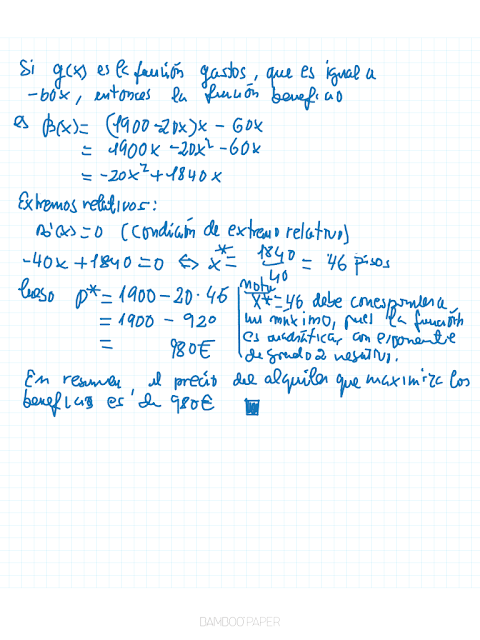 Si g(x) es la función gastos, que es igual a
-60x, entonces la función beneficio
es B(x) = (1900-20x)x - 60x
= 1900x - 20x² - 60x
= -20x² + 1840x
Extremos relativos:
B'(x) = 0 (Condición de extremo relativo)
-40x + 1840 = 0 ⇔ x* = 1840/40 = 46 pisos
luego p* = 1900 - 20 · 46
= 1900 - 920
= 980€
Nota
x* = 46 debe corresponder a
un máximo, pues la función
es cuadrática, con exponente
de grado 2 negativo.
En resumen, el precio del alquiler que maximiza los
beneficios es de 980€
BAMBOO PAPER